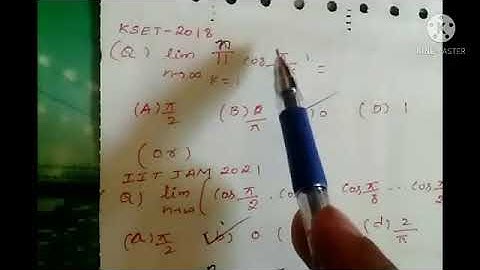 KSET-2018
(Q) lim n→∞ n Π k=1 cos π =
(A) π/2 (B) 2/π 0 (D) 1
(Or)
IIT JAM 2021
(Q) lim n→∞ (cos π/2 · cos π/8 ·· cos π/2
(a) π/2 (b) 0 (d) 2/π
KINEMASTER